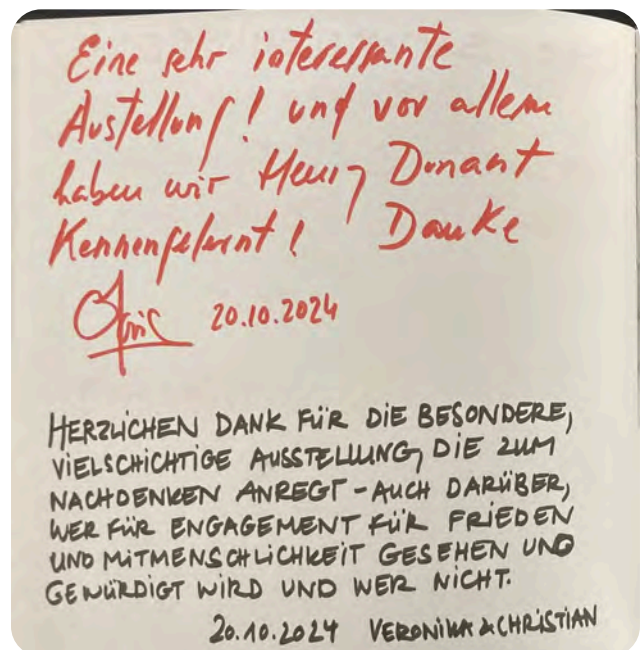 Eine sehr interessante
Austellung! und vor allem
haben wir Henry Dunant
Kennengelernt! Danke
20.10.2024
HERZLICHEN DANK FÜR DIE BESONDERE,
VIELSCHICHTIGE AUSSTELLUNG, DIE ZUM
NACHDENKEN ANREGT - AUCH DARÜBER,
WER FÜR ENGAGEMENT FÜR FRIEDEN
UND MITMENSCHLICHKEIT GESEHEN UND
GEWÜRDIGT WIRD UND WER NICHT.
20.10.2024 VERONIKA & CHRISTIAN